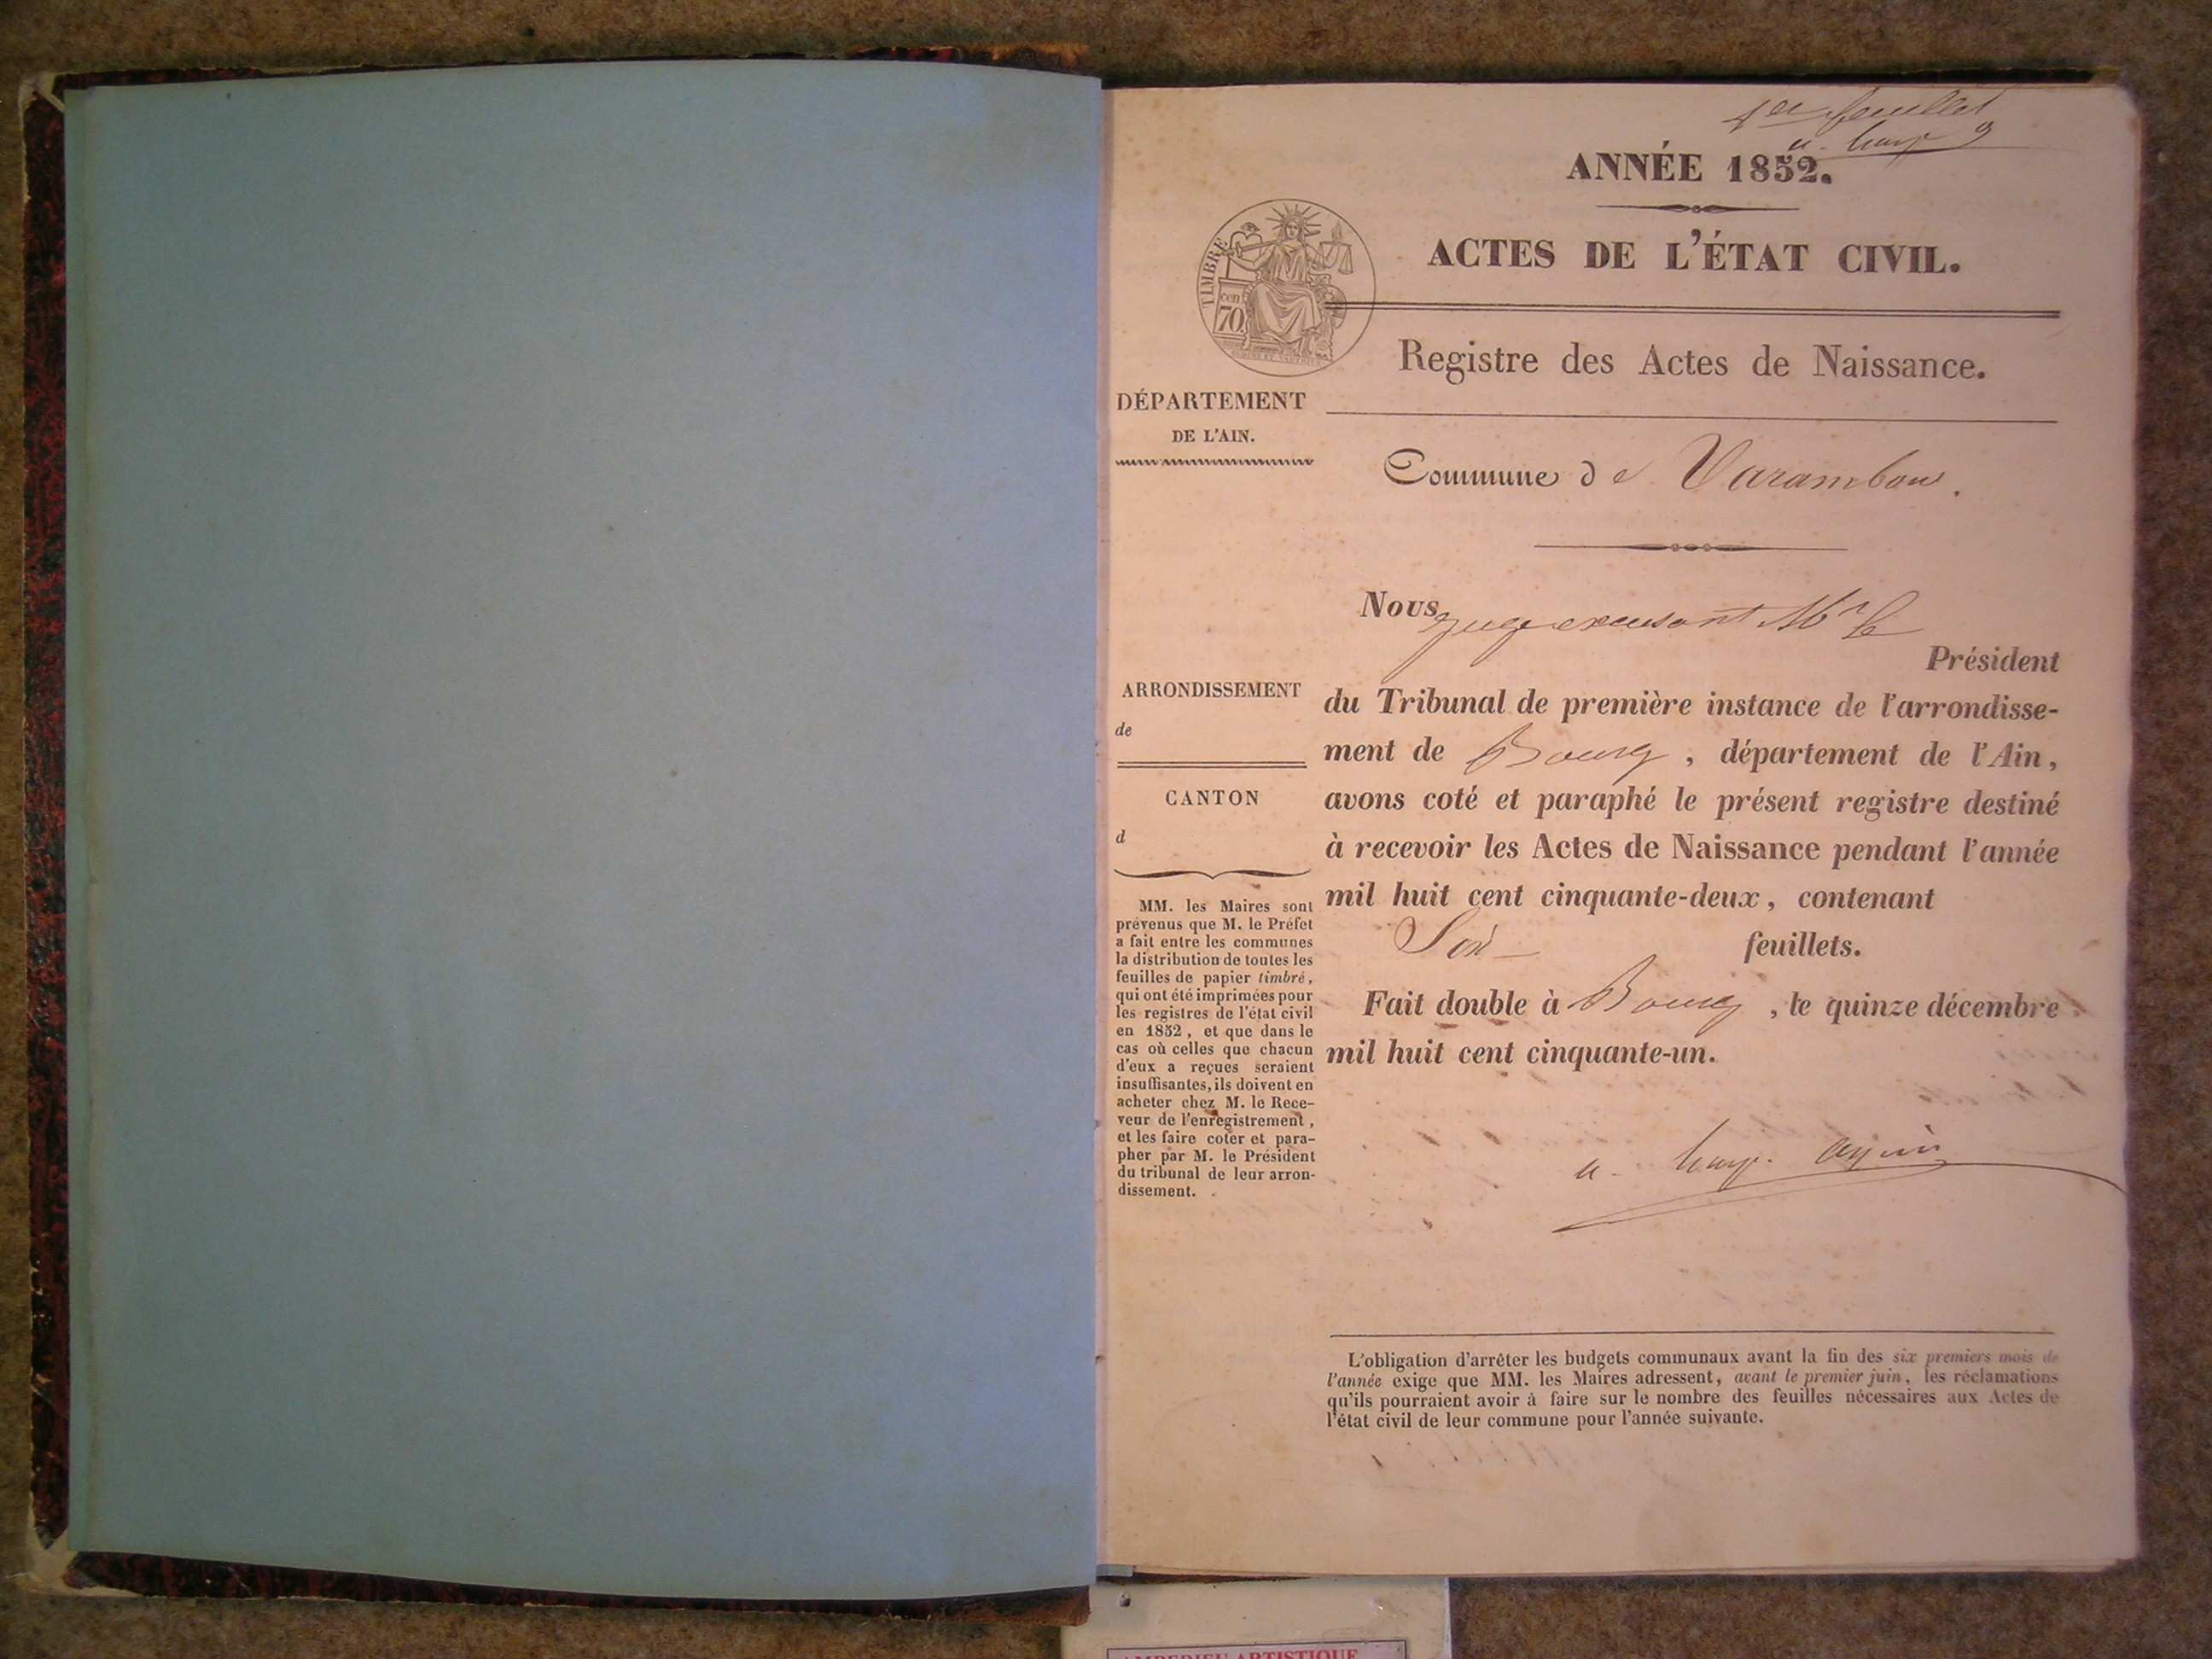 1er feuillet
ANNÉE 1852.
ACTES DE L'ÉTAT CIVIL.
TIMBRE
cen
70
Registre des Actes de Naissance.
DÉPARTEMENT
DE L'AIN.
Commune de Varambon.
Nous, juge excusant Mr le
Président
du Tribunal de première instance de l'arrondisse-
ment de Bourg, département de l'Ain,
avons coté et paraphé le présent registre destiné
à recevoir les Actes de Naissance pendant l'année
mil huit cent cinquante-deux, contenant
Six feuillets.
Fait double à Bourg, le quinze décembre
mil huit cent cinquante-un.
ARRONDISSEMENT
de
CANTON
d
MM. les Maires sont
prévenus que M. le Préfet
a fait entre les communes
la distribution de toutes les
feuilles de papier timbré,
qui ont été imprimées pour
les registres de l'état civil
en 1852, et que dans le
cas où celles que chacun
d'eux a reçues seraient
insuffisantes, ils doivent en
acheter chez M. le Rece-
veur de l'enregistrement,
et les faire coter et para-
pher par M. le Président
du tribunal de leur arron-
dissement.
L'obligation d'arrêter les budgets communaux avant la fin des six premiers mois de
l'année exige que MM. les Maires adressent, avant le premier juin, les réclamations
qu'ils pourraient avoir à faire sur le nombre des feuilles nécessaires aux Actes de
l'état civil de leur commune pour l'année suivante.
AMBERIEU ARTISTIQUE